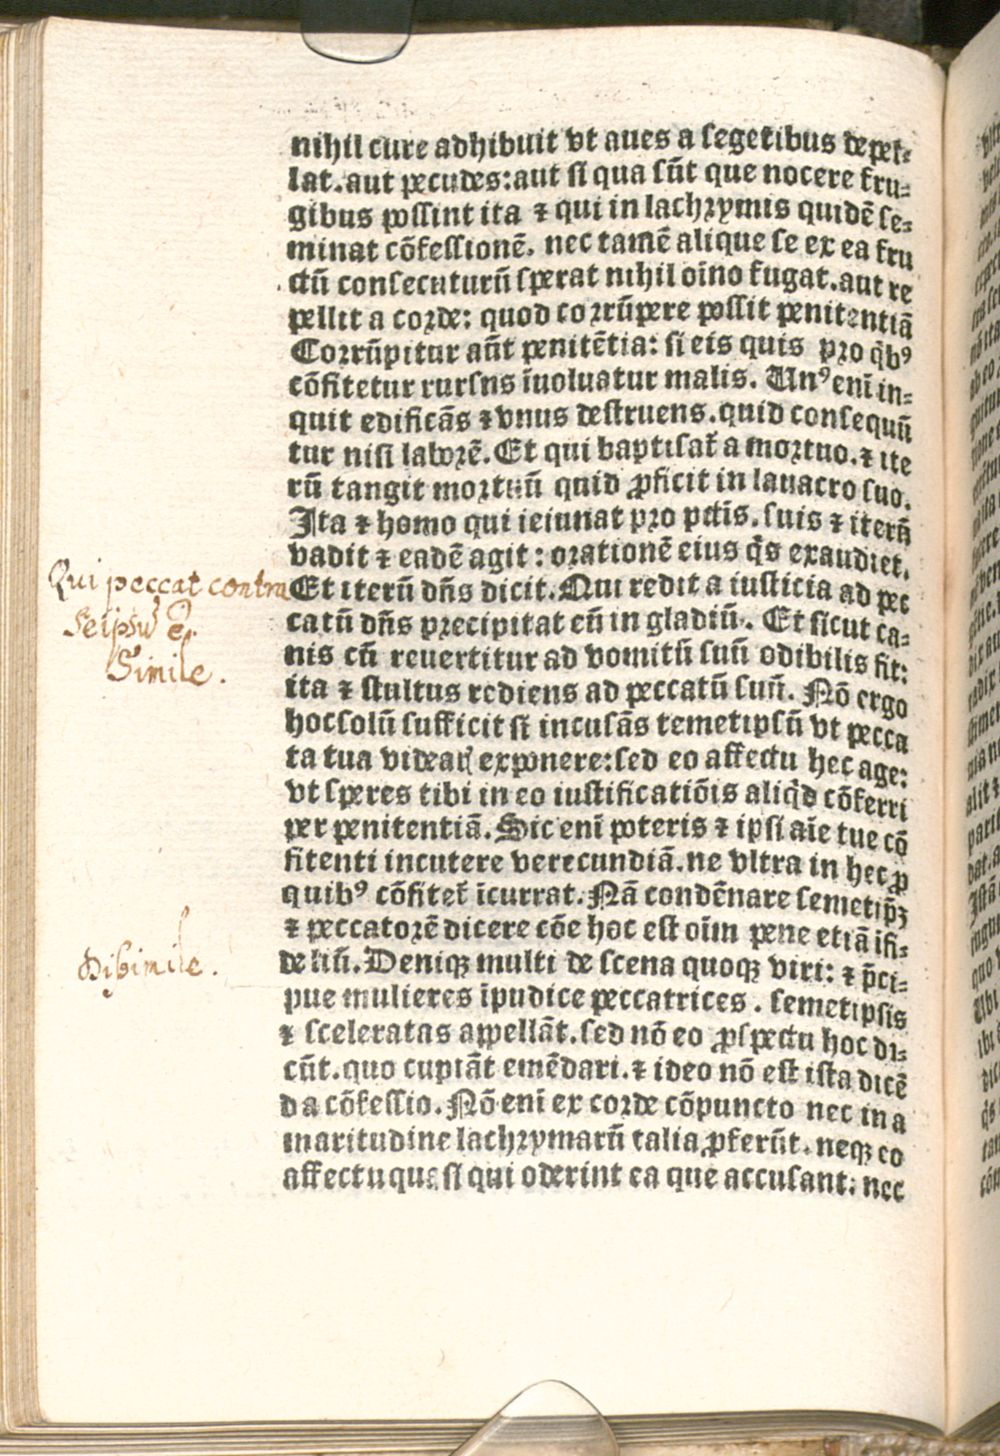 nihil cure adhibuit vt aues a segetibus depel⸗
lat.aut pecudes:aut si qua sūt que nocere fru⸗
gibus possint ita ⁊ qui in lachrymis quidē se⸗
minat cōfessionē. nec tamē alique se ex ea fru
ctū consecuturū sperat nihil oīno fugat.aut re
pellit a corde: quod corrūpere possit penitentiā
Corrūpitur aūt penitētia: si eis quis pro qͥbꝰ
cōfitetur rursns īuoluatur malis. Unꝰ enī in⸗
quit edificās ⁊ vnus destruens.quid consequū
tur nisi laborē.Et qui baptisat̄ a mortuo.⁊ ite
rū tangit mortuū quid ꝓficit in lauacro suo.
Ita ⁊ homo qui ieiunat pro pctīs. suis ⁊ iterū
vadit ⁊ eadē agit: orationē eius qͥs exaudiet.
Qui peccat contra
Seipsū ē.
Simile.
Et iterū dn̄s dicit.Qui redit a iusticia ad pec
catū dn̄s precipitat eū in gladiū. Et sicut ca⸗
nis cū reuertitur ad vomitū suū odibilis fit:
ita ⁊ stultus rediens ad peccatū suū. Nō ergo
hocsolū sufficit si incusās temetipsū vt pecca
ta tua videaꝭ exponere:sed eo affectu hec age:
vt speres tibi in eo iustificatiōis aliqͥd cōferri
per penitentiā.Sic enī poteris ⁊ ipsi aīe tue cō
fitenti incutere verecundiā.ne vltra in hec ꝓ
quibꝰ cōfitet̄ īcurrat.Nā condēnare semetip̄ꝫ
⁊ peccatorē dicere cōe hoc est oīm pene etiā ifi⸗
Disimile.
deliū.Deniqꝫ multi de scena quoqꝫ viri: ⁊ p̄ci⸗
pue mulieres īpudice peccatrices. semetipsis
⁊ sceleratas appellāt.sed nō eo ꝓspectu hoc di⸗
cūt.quo cupiāt emēdari.⁊ ideo nō est ista dicē
da cōfessio.Nō enī ex corde cōpuncto nec in a
maritudine lachrymarū talia ꝓferūt.neqꝫ eo
affectu quasi qui oderint ea que accusant: nec